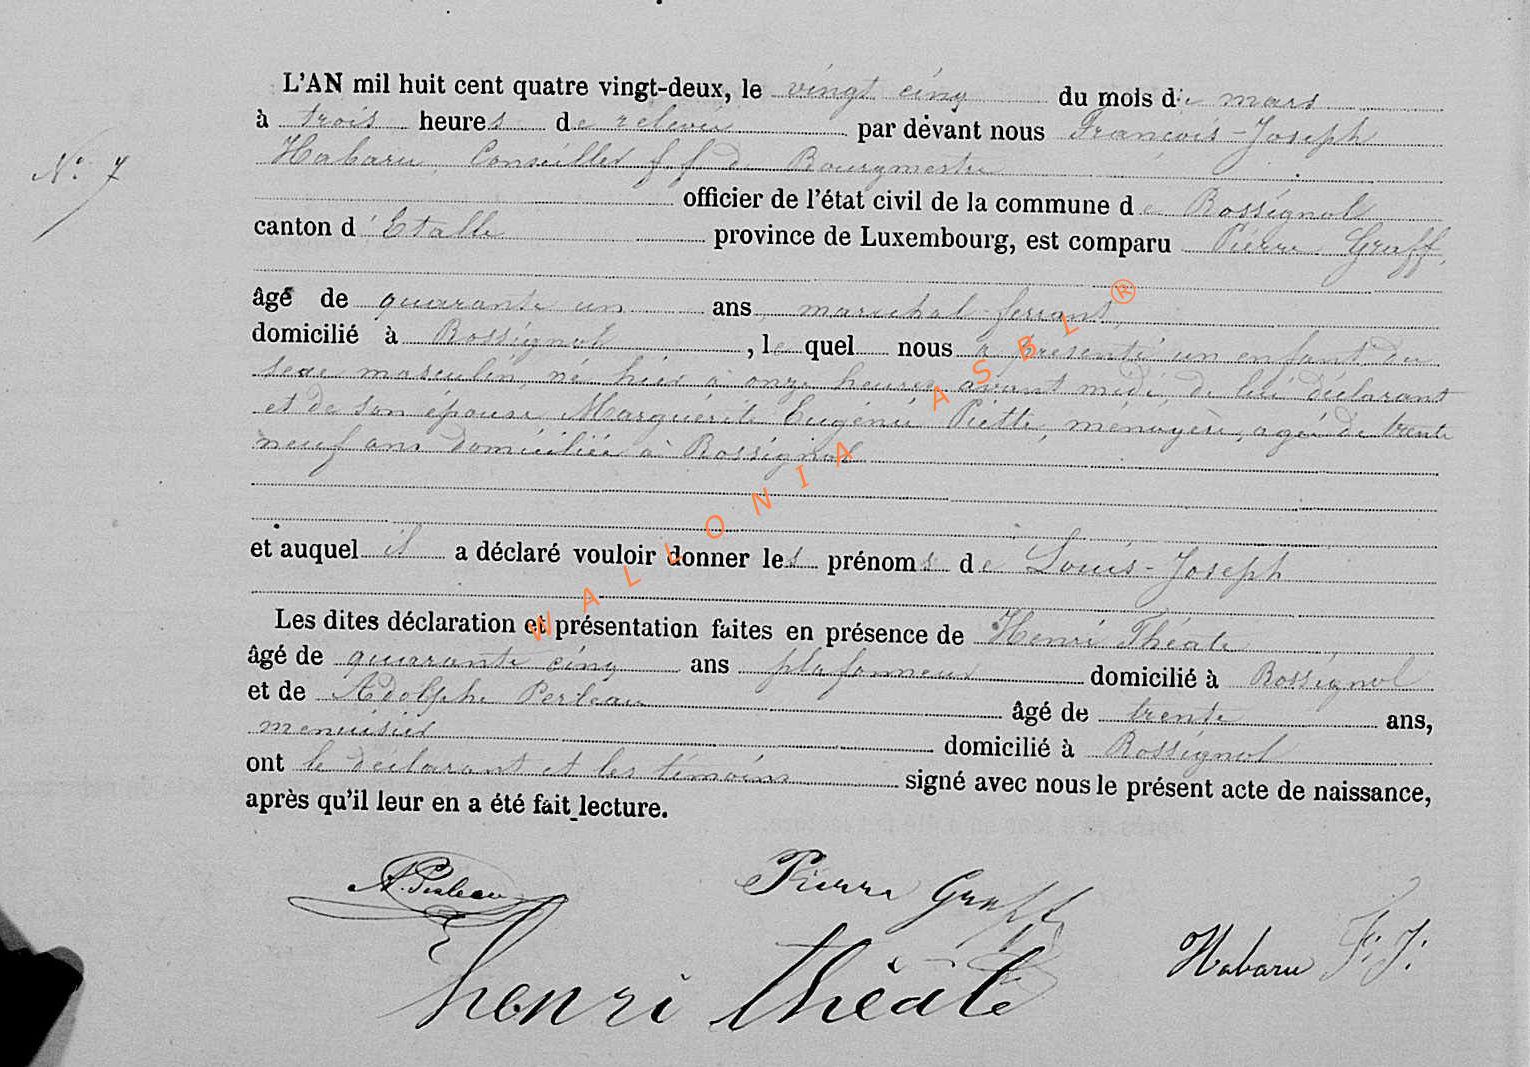 L'AN mil huit cent quatre vingt-deux, le vingt cinq du mois de mars
à trois heures de relevée par devant nous François-Joseph
Habaru, Conseiller f f de Bourgmestre
N° 7
officier de l'état civil de la commune de Rossignol
canton d'Etalle province de Luxembourg, est comparu Pierre Graff,
âgé de quarante un ans, maréchal-ferrant,
domicilié à Rossignol, lequel nous a présenté un enfant du
sexe masculin, né hier à onze heures avant midi, de lui déclarant
et de son épouse Marguérite Eugénie Piette, ménagère, agée de trente
neuf ans domiciliée à Rossignol
et auquel il a déclaré vouloir donner les prénoms de Louis-Joseph
Les dites déclaration et présentation faites en présence de Henri Théate
âgé de quarante cinq ans plafonneur domicilié à Rossignol
et de Adolphe Perleau âgé de trente ans,
menuisier domicilié à Rossignol
ont le déclarant et les témoins signé avec nous le présent acte de naissance,
après qu'il leur en a été fait lecture.
A. Perleau Pierre Graff
henri théate Habaru F. J.
WALLONIA ASBL ®